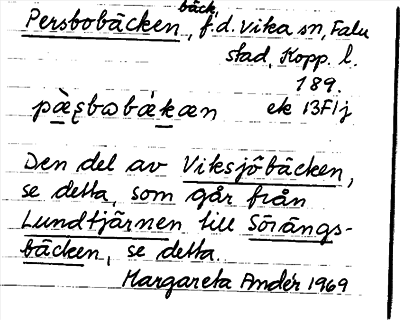 bäck,
Persbobäcken, f.d. Vika sn, Falu
stad, Kopp. l.
189.
pὰ̱ʂbωbá̱kæn ek 13F1j
Den del av Viksjöbäcken,
se detta, som går från
Lundtjärnen till Sörängs-
bäcken, se detta.
Margareta Andér 1969